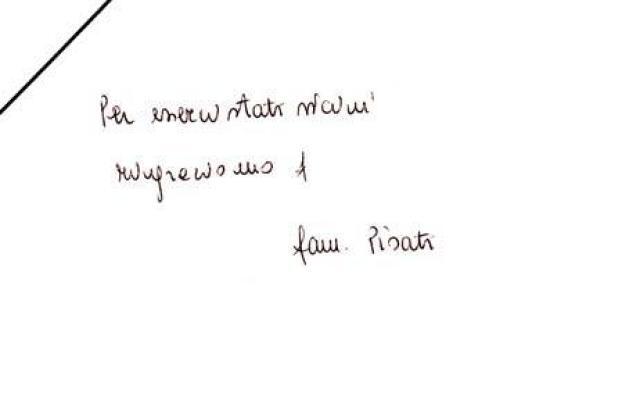 Per esserci stati vicini
ringraziamo
fam. Pisati